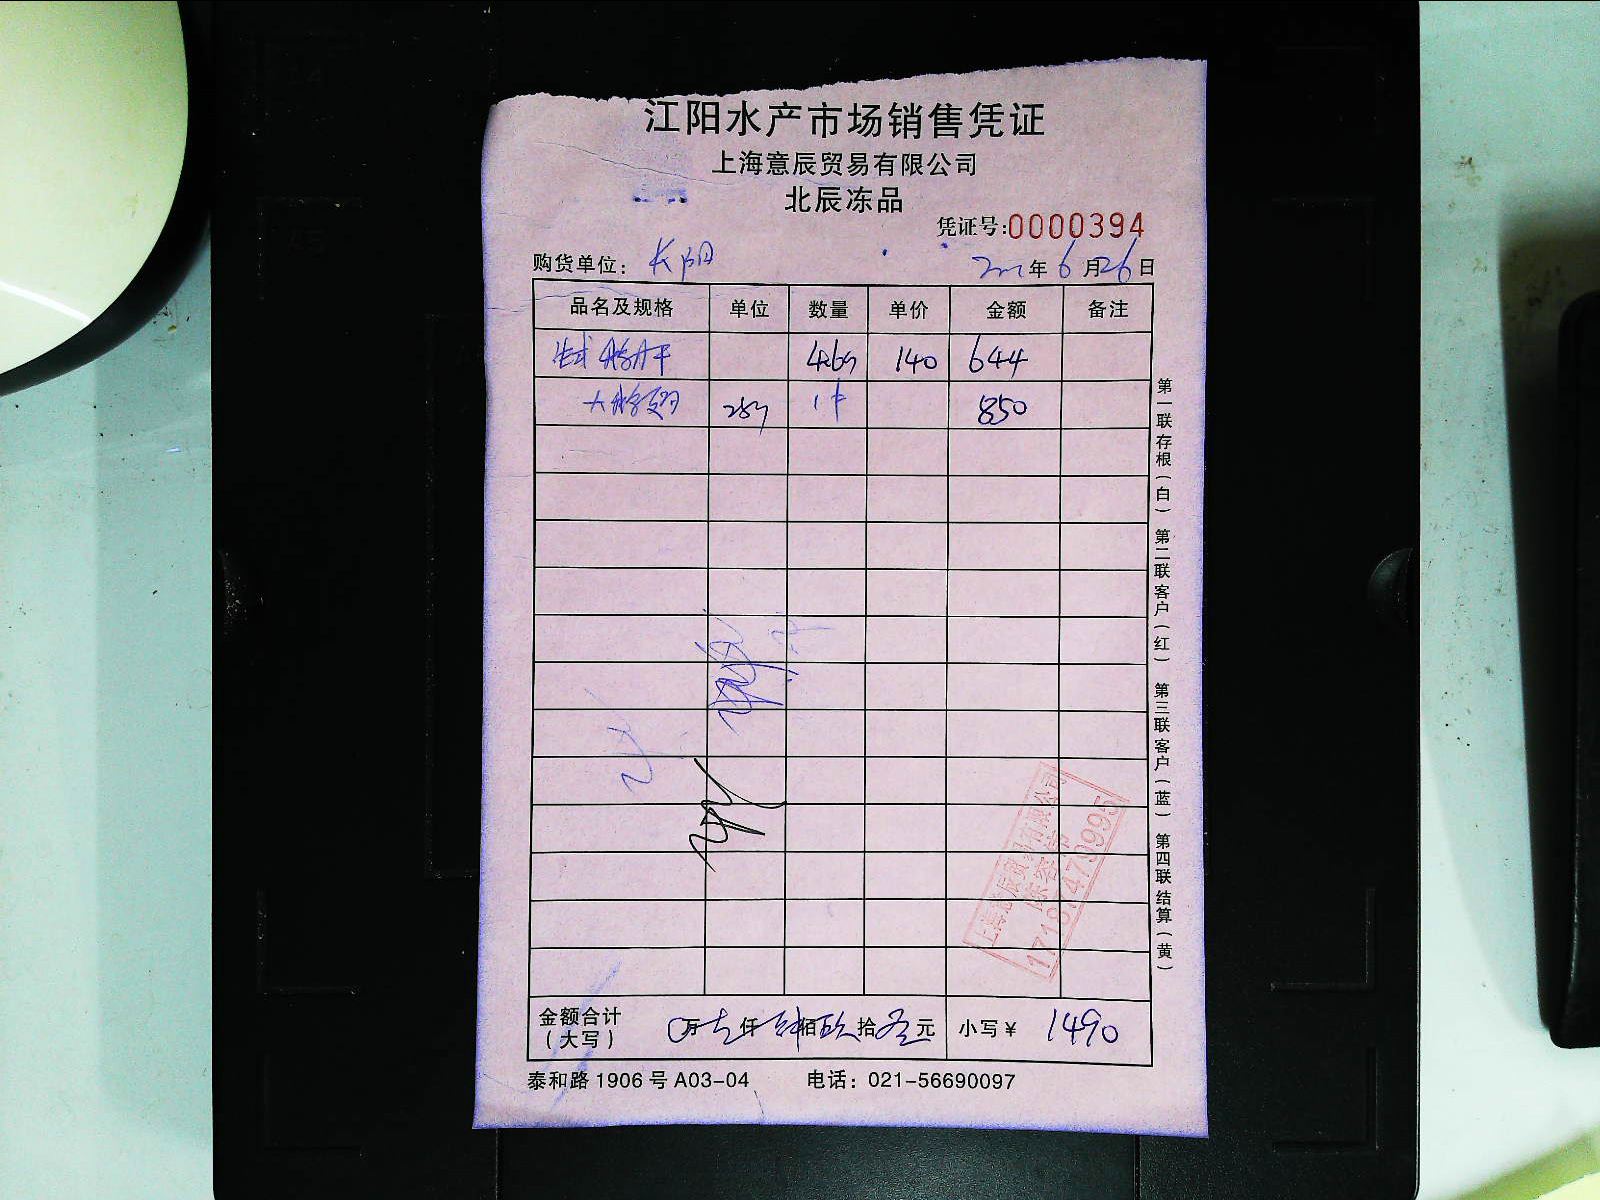 江阳水产市场销售凭证
上海意辰贸易有限公司
北辰冻品
凭证号:0000394
购货单位: 长阳 年 6 月 26 日
品名及规格 单位 数量 单价 金额 备注
法式 鹅肝 4.6 140 644
大鹅翅 1件 850
第一联存根(白) 第二联客户(红) 第三联客户(蓝) 第四联结算(黄)
上海意辰贸易有限公司
17187470995
金额合计
(大写) 0万 仟 肆佰 玖拾 元 小写¥ 1490
泰和路1906号A03-04 电话: 021-56690097